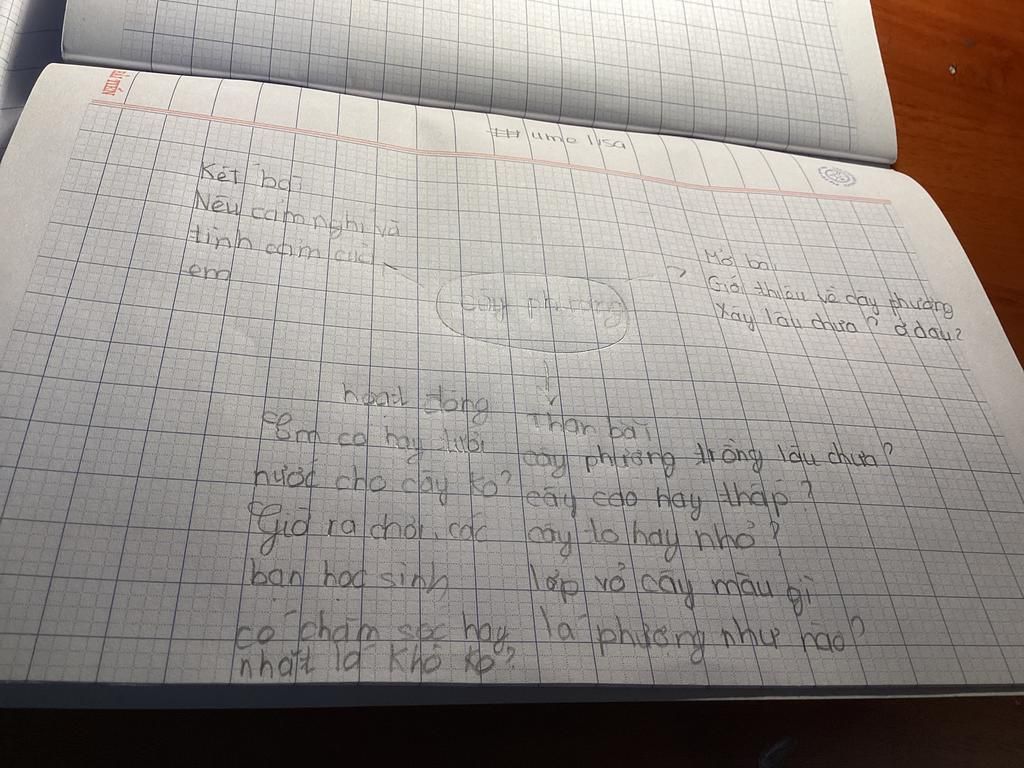 Kết bài
Nêu cảm nghĩ và
tình cảm của
em
cây phượng
Mở bài
Giới thiệu về cây phượng
Xây lâu chưa? ở đâu?
hoạt động
Em có hay tưới
nước cho cây ko?
Giờ ra chơi, các
bạn học sinh
có chăm sóc hay
nhặt lá khô ko?
Thân bài
cây phượng trồng lâu chưa?
cây cao hay thấp?
cây to hay nhỏ?
lớp vỏ cây màu gì
lá phượng như nào?